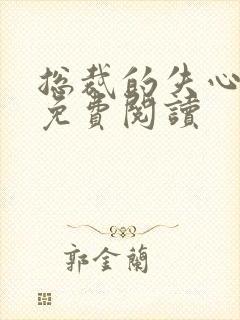 总裁的失心
免費閱讀
郭金蘭